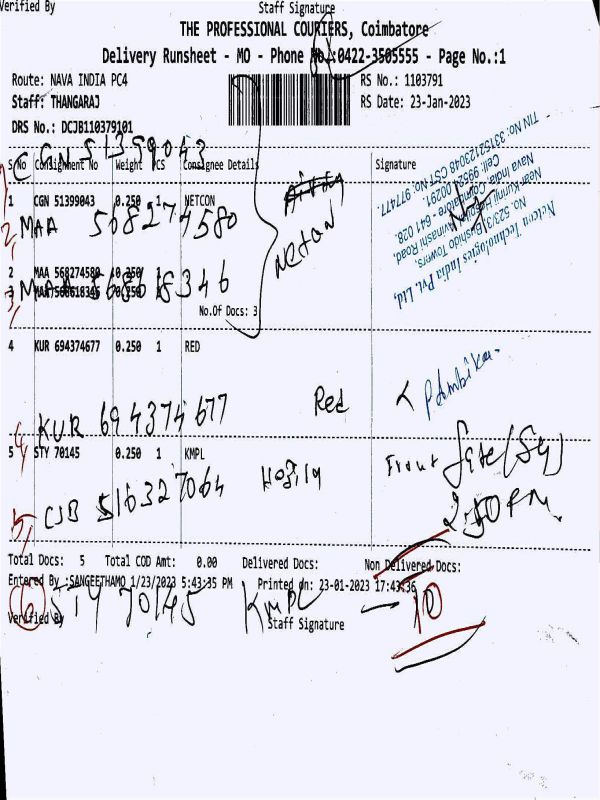 Verified By
Staff Signature
THE PROFESSIONAL COURIERS, Coimbatore
Delivery Runsheet - MO - Phone No.:0422-3505555 - Page No.:1
Route: NAVA INDIA PC4
RS No.: 1103791
Staff: THANGARAJ
RS Date: 23-Jan-2023
DRS No.: DCJB110379101
CGN 51399043
S.No Consignment No Weight PCS Consignee Details Signature
1 CGN 51399043 0.250 1 NETCON
2, MAA 568274580
NETCON
Netcon Technologies India Pvt. Ltd,
No. 523/3, Bushido Towers,
Near Kumuj Hospital, Avinashi Road,
Nava India, Coimbatore - 641 028.
TIN No: 33152123048 CST No: 977477.
2 MAA 568274580 0.250 1
3 MAA 568618346
3, MAA 568618346
No.Of Docs: 3
4 KUR 694374677 0.250 1 RED
4, KUR 694374677 Red
5 STY 70145 0.250 1 KMPL
5, CJB 516327064
Front Gate (Sq)
2.50 PM.
Total Docs: 5 Total COD Amt: 0.00 Delivered Docs: Non Delivered Docs:
Entered By :SANGEETHAMO 1/23/2023 5:43:35 PM Printed on: 23-01-2023 17:43:36
6 STY 70145 KMPL — 10
Verified By
Staff Signature